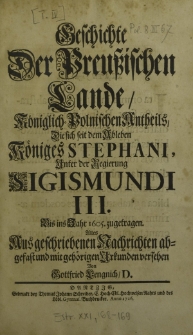 [T. 4]
Geschichte
Der Preußischen
Lande/
Königlich-Polnischen Antheils/
Die sich seit dem Ableben
Königes STEPHANI,
Unter der Regierung
SIGISMUNDI
III.
Bis ins Jahr 1605. zugetragen.
Alles
Aus geschriebenen Nachrichten ab-
gefaßt und mit gehörigen Urkunden versehen
Von
Gottfried Lengnich/ D.
DANTZIG,
Gedruckt bey Thomas Johann Schreiber, E. Hoch-Edl. Hochweisen Rahts und des
Gymnas. Buchdrucker.